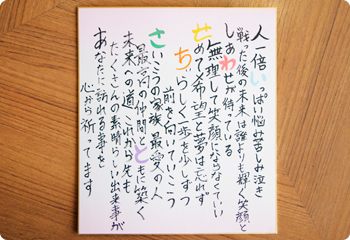 人一倍いっぱい悩み苦しみ泣き
戦った後の未来は誰より輝く笑顔と
しあわせが待っている
無理して笑顔にならなくていい
せめて希望と夢は忘れず
ちょっとづつ
前を向いていこう
さいこうの家族、最愛の人
最高の仲間とともに築く
未来への道 これから先も
たくさんの素晴らしい出来事が
あなたに訪れる事を
心から祈ってます